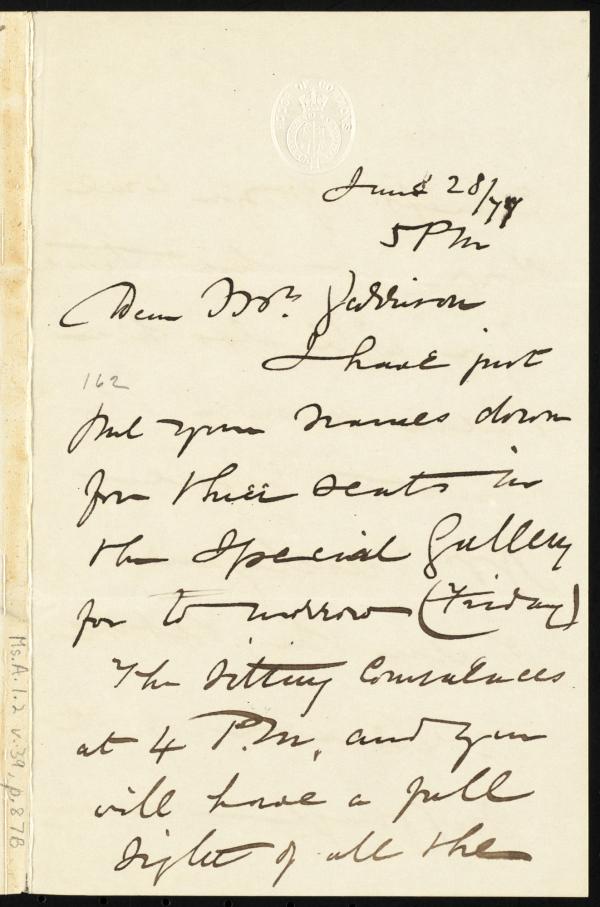 HOUSE OF COMMONS
June 28/77
5 PM
Dear Mr. Garrison
I have just
162
put your names down
for three seats in
the Special Gallery
for to morrow (Friday)
The sitting commences
at 4 P.M. and you
will have a full
sight of all the
Ms.A.1.2 v.39, p.87B